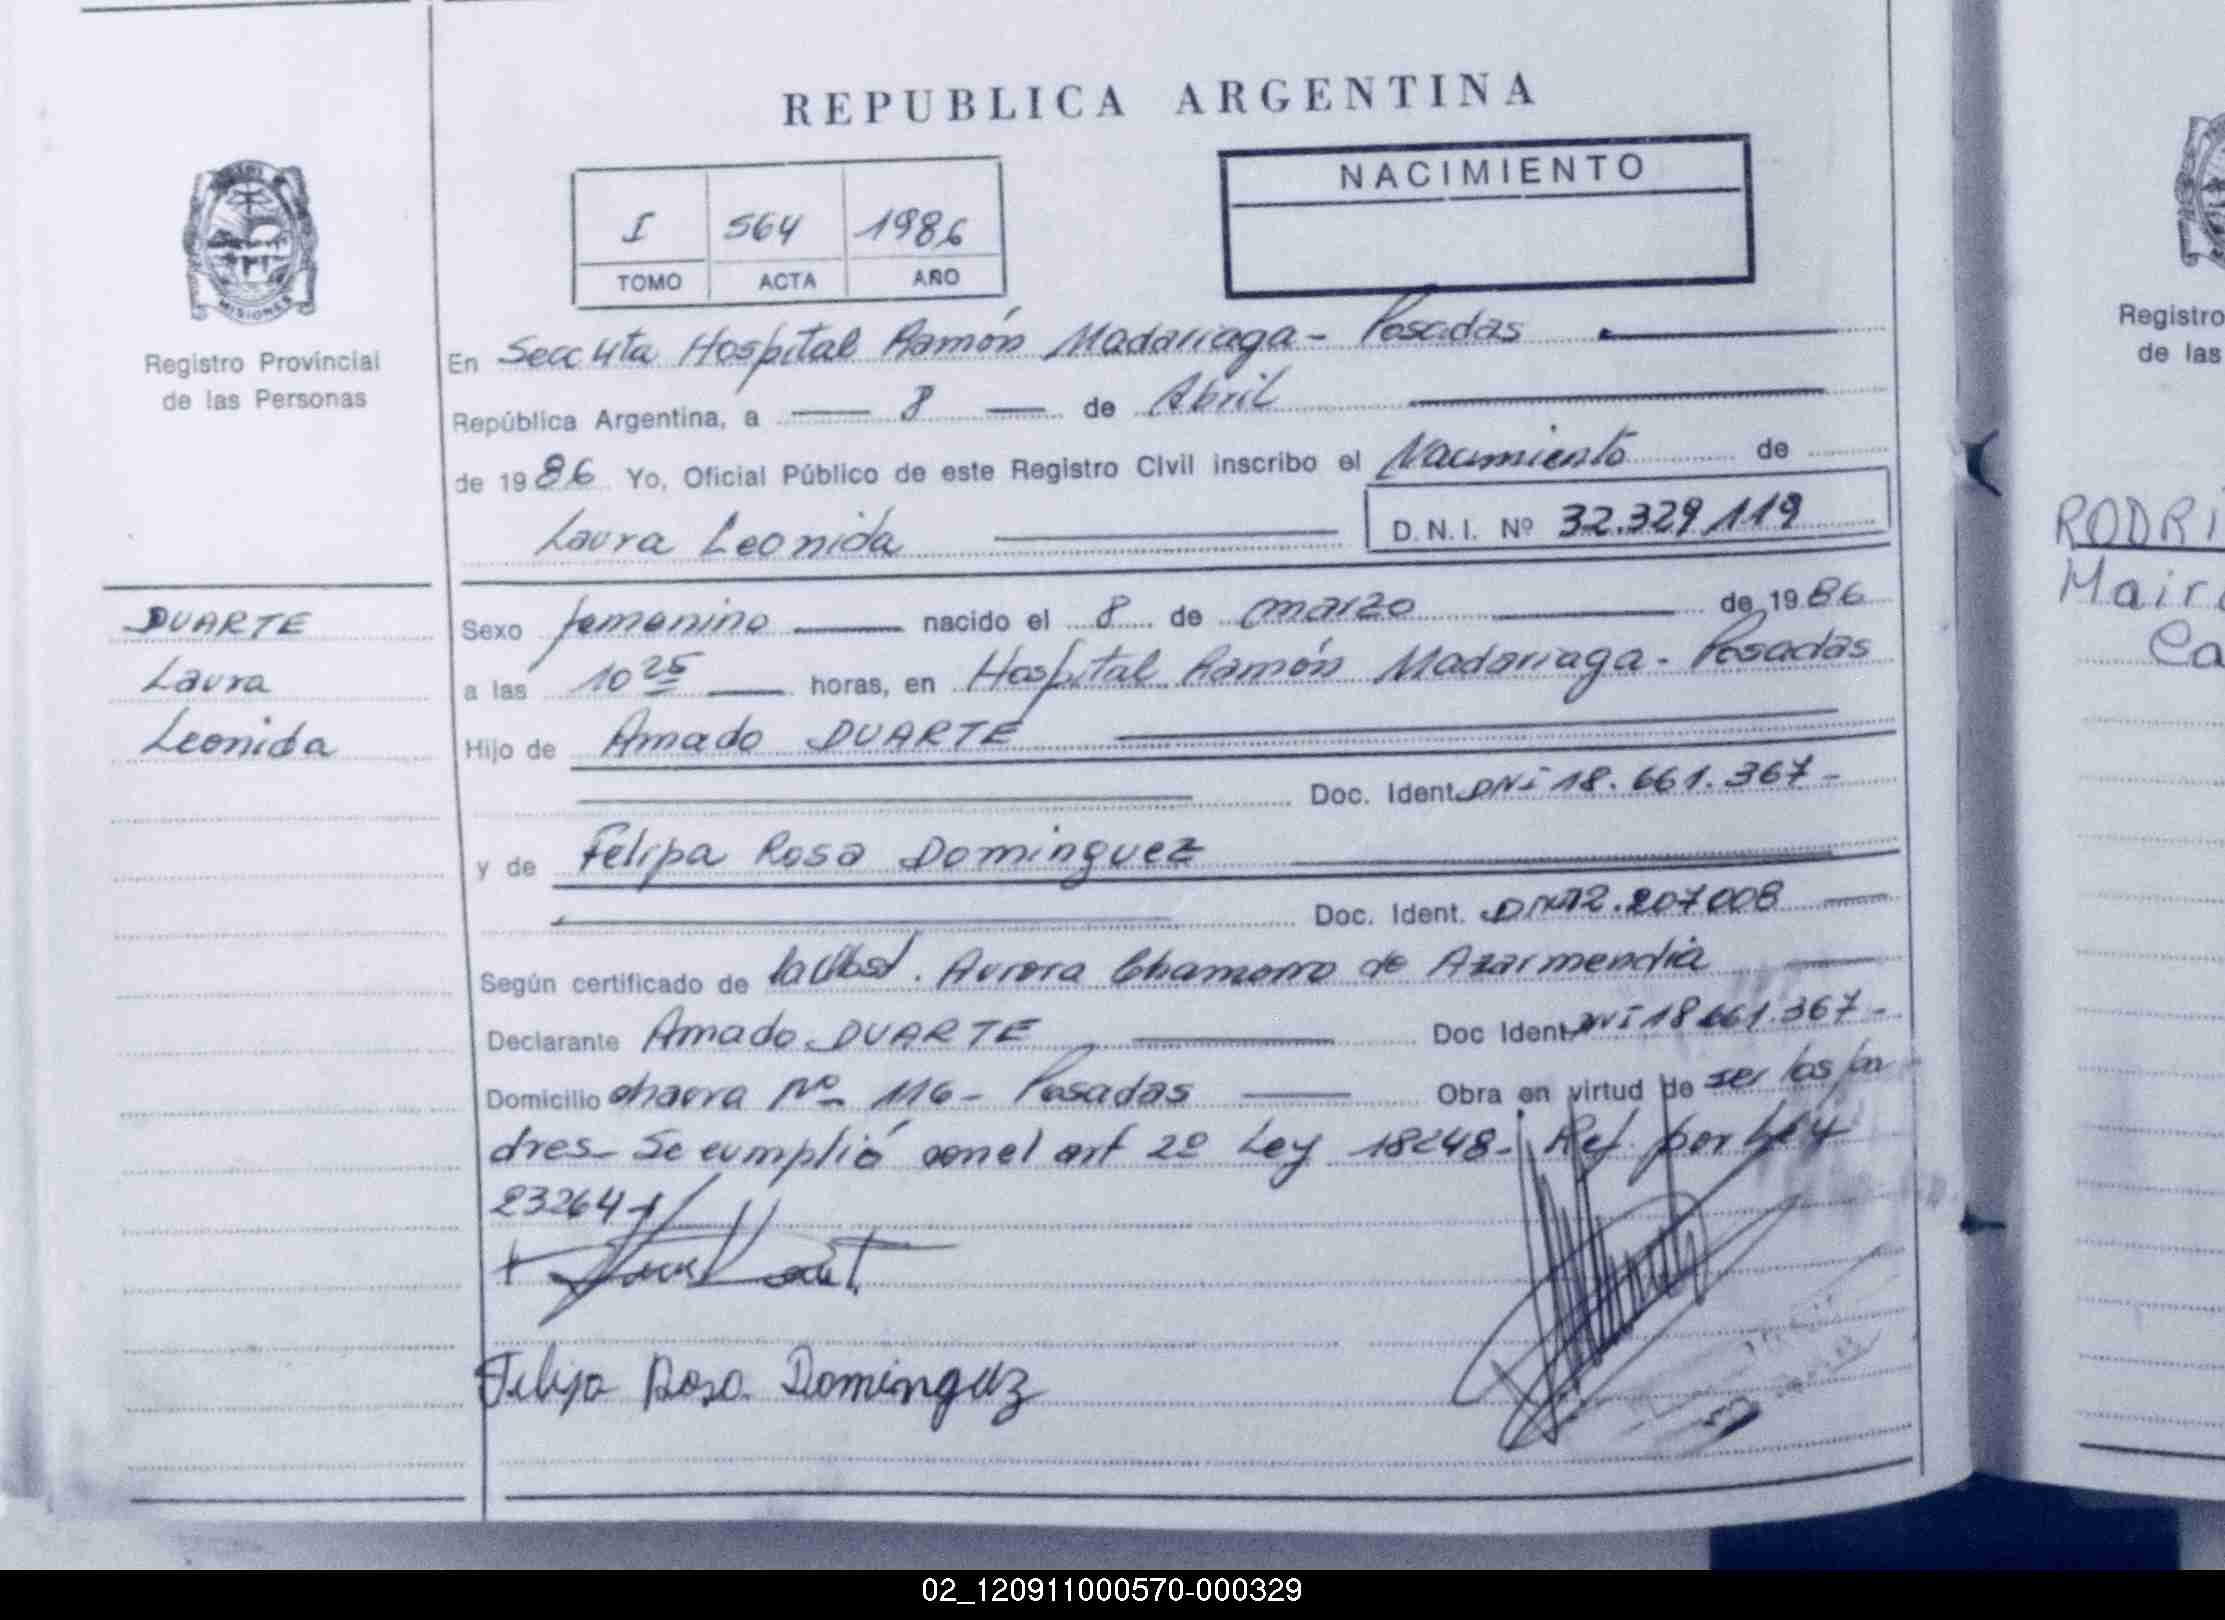 REPUBLICA ARGENTINA
NACIMIENTO
I 564 1986
TOMO ACTA AÑO
MISIONES
Registro Provincial
de las Personas
En Secc 4ta Hospital Ramón Madariaga - Posadas
República Argentina, a 8 de Abril
de 1986 Yo, Oficial Público de este Registro Civil inscribo el Nacimiento de
Laura Leonida D.N.I. Nº 32.329.119
DUARTE
Laura
Leonida
Sexo femenino nacido el 8 de marzo de 1986
a las 10 25 horas, en Hospital Ramón Madariaga - Posadas
Hijo de Amado DUARTE
Doc. Ident. DNI 18.661.367-
y de Felipa Rosa Dominguez
Doc. Ident. DNI 12.207008
Según certificado de la Obst. Aurora Chamorro de Azarmendia
Declarante Amado DUARTE Doc Ident. DNI 18.661.367-
Domicilio chacra Nº 116 - Posadas Obra en virtud de ser los pa
dres - Se cumplió con el art 2º Ley 18248 - Ref. por Ley
23264 -
Felipa Rosa Dominguez
Registro
de las
RODRI
Mair
Ca
02_120911000570-000329